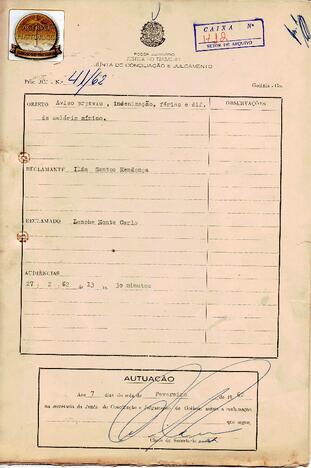 PODER JUDICIÁRIO
JUSTIÇA DO TRABALHO
JUNTA DE CONCILIAÇÃO E JULGAMENTO
CAIXA Nº
718
SETOR DE ARQUIVO
Proc. JCJ - Nº 41/62
Goiânia - Go.
OBJETO Aviso prévio, indenização, férias e dif.
de salário mínimo.
OBSERVAÇÕES
RECLAMANTE Ilda Santos Mendonça
RECLAMADO Lanche Monte Carlo
AUDIÊNCIAS
27 2 62 13 30 minutos
AUTUAÇÃO
Aos 7 dias do mês de Fevereiro de 19 62
na secretaria da Junta de Conciliação e Julgamento de Goiânia autuo a reclamação
que segue.
Chefe de Secretaria